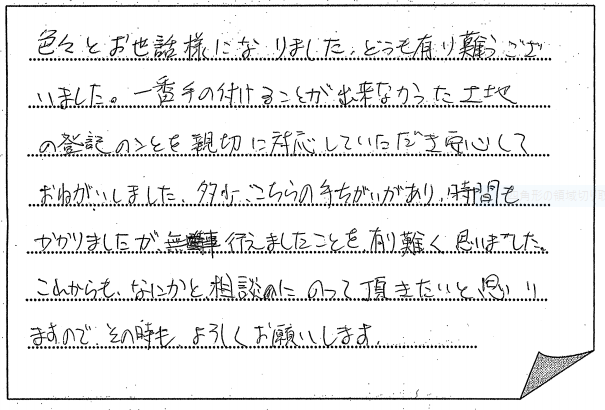 色々とお世話様になりました。どうも有り難うござ
いました。一番手の付けることが出来なかった土地
の登記のことを親切に対応していただき安心して
おねがいしました。多少、こちらの手ちがいがあり、時間も
かかりましたが、無事行えましたことを有り難く思いました。
これからも、なにかと相談にのって頂きたいと思い
ますので、その時も よろしくお願いします。